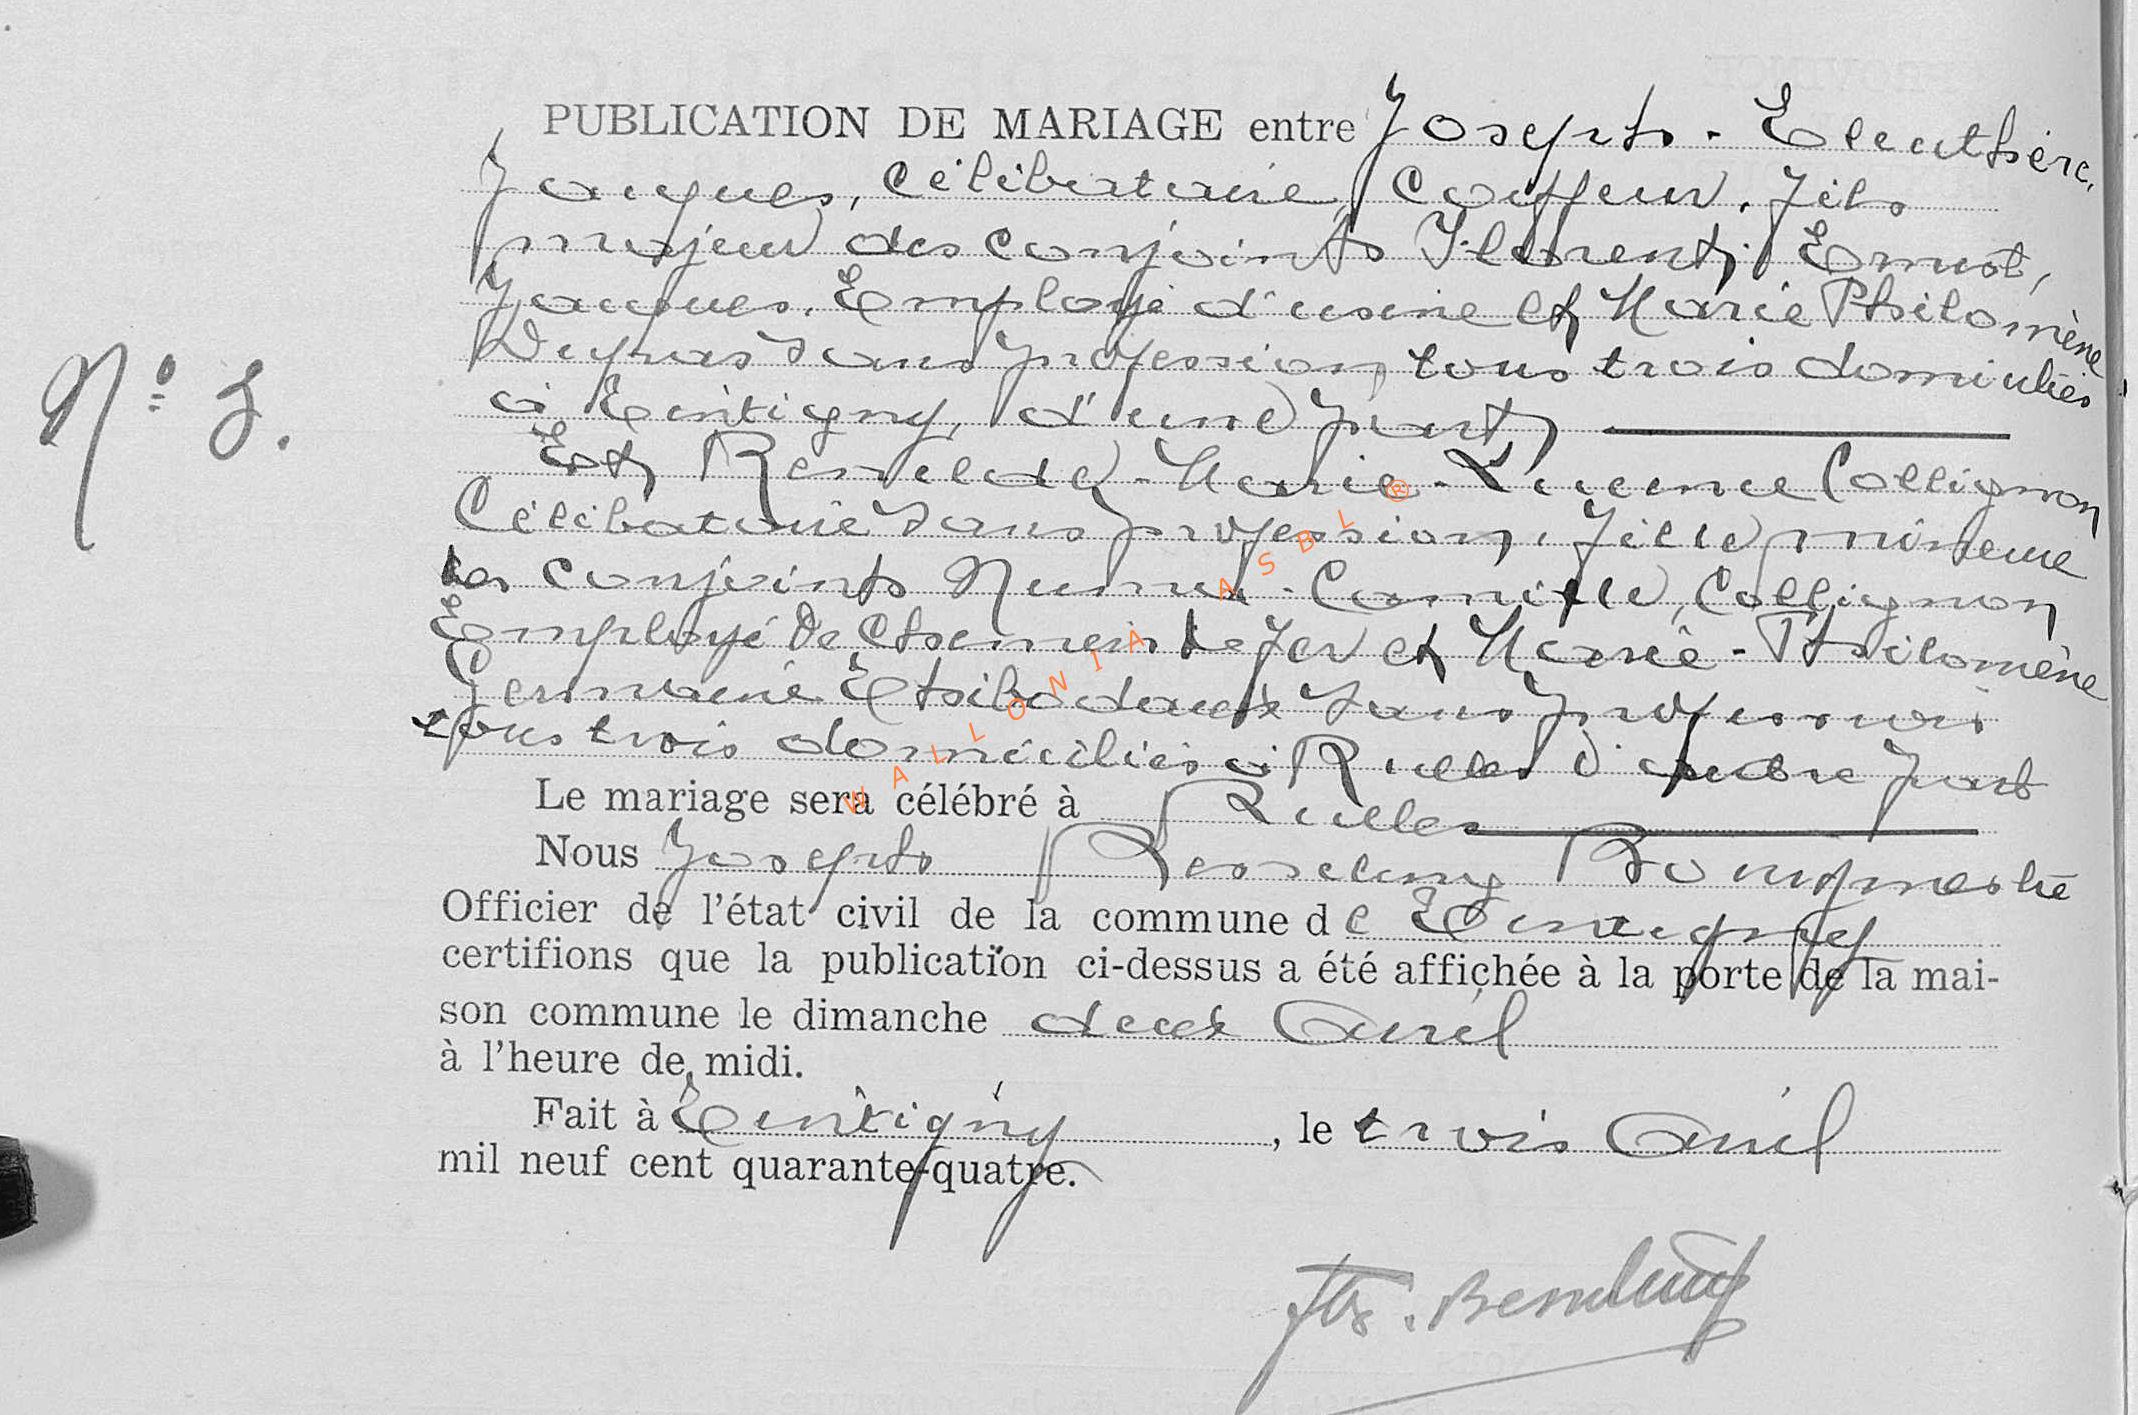 PUBLICATION DE MARIAGE entre Joseph - Eleuthère,
Jacques, Célibataire, Coiffeur, fils
majeur des conjoints Florent, Ernest,
Jacques, Employé d'usine et Marie Philomène
Depras sans profession, tous trois domiciliés
à Tintigny, d'une part,
Et Renelde - Marie - Lucence Collignon
Célibataire sans profession, fille mineure
des conjoints Numa - Camille, Collignon
Employé de Chemin de fer et Marie - Philomène
Germaine Thibodaux sans profession
tous trois domiciliés à Rulles d'autre part
Le mariage sera célébré à Rulles
Nous Joseph Bourgmestre
Officier de l'état civil de la commune de Tintigny
certifions que la publication ci-dessus a été affichée à la porte de la mai-
son commune le dimanche deux Avril
à l'heure de midi.
Fait à Tintigny, le trois Avril
mil neuf cent quarante-quatre.
N°
WALLONIA ASBL ®